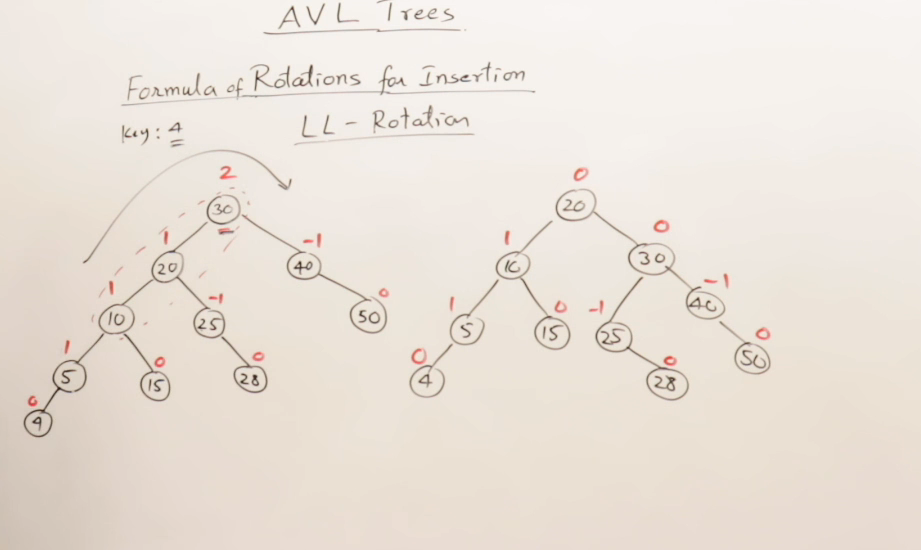 AVL Trees
Formula of Rotations for Insertion
Key: 4
LL - Rotation
2
30
1
20
-1
40
1
10
-1
25
0
50
1
5
0
15
0
28
0
4
0
20
1
10
0
30
1
5
0
15
-1
25
-1
40
0
4
0
28
0
50